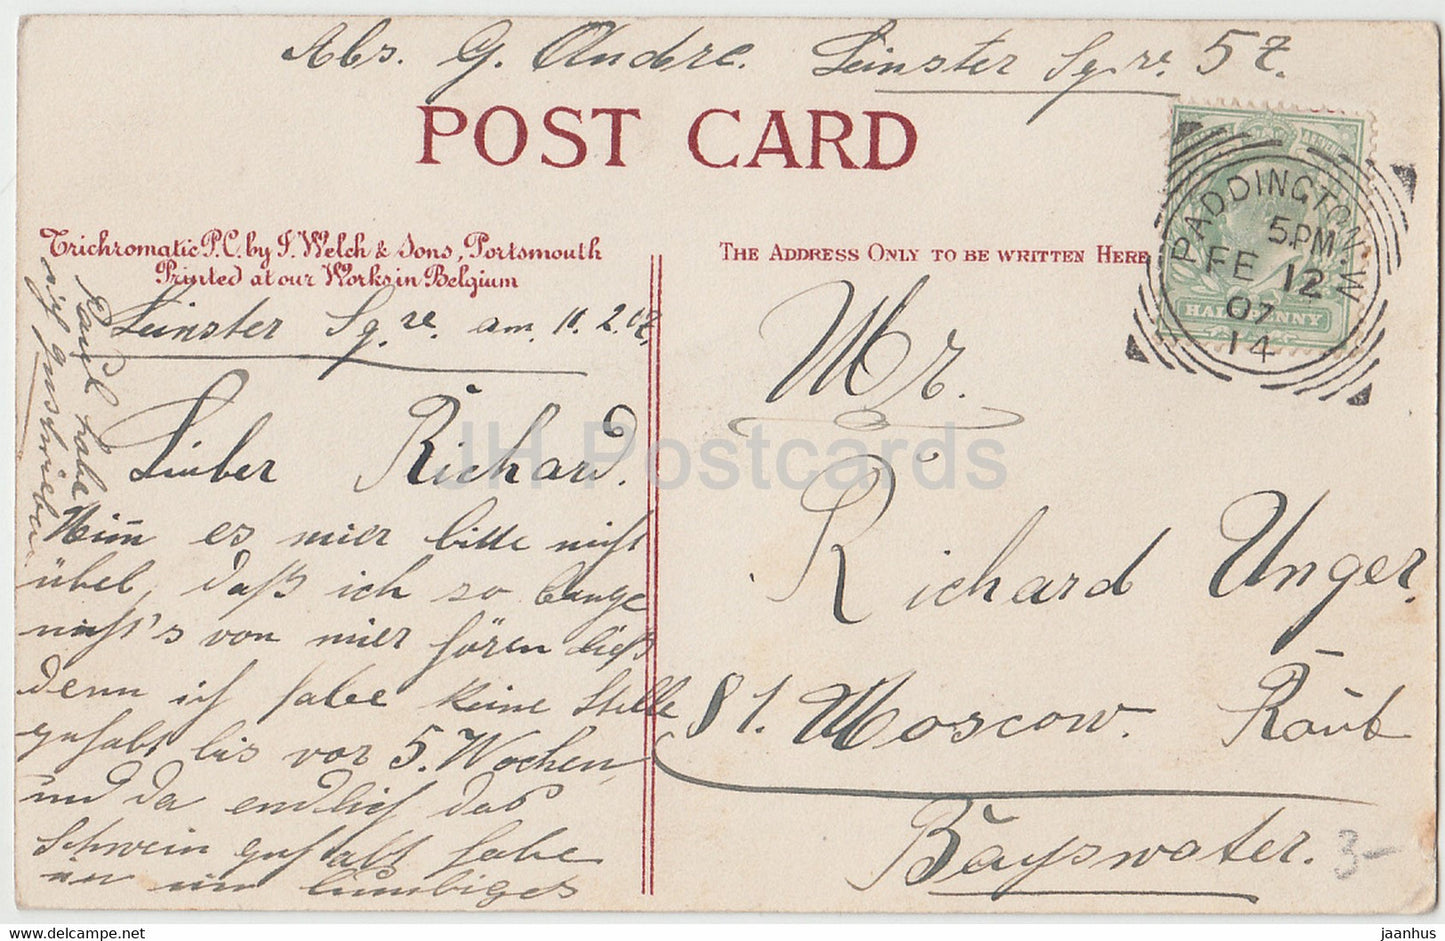 Abs. G. Andre. Leinster Sq.re. 57.
POST CARD
Trichromatic P.C. by J. Welch & Sons, Portsmouth
Printed at our Works in Belgium
THE ADDRESS ONLY TO BE WRITTEN HERE
PADDINGTON. W.
5.PM
FE 12
07
14
HALFPENNY
Leinster Sq.re. am. 11. 2. 07.
Lieber Richard.
Nim̅ es mier bitte nicht
übel, daß ich so lange
nicht's von mier hören ließ
denn ich habe keine Stelle
gehabt bis vor 5. Wochen,
und da endlich das
Schwein gehabt habe
habe
Mr.
Richard Unger.
81. Moscow. Road
Bayswater.
3-
JH Postcards
jaanhus